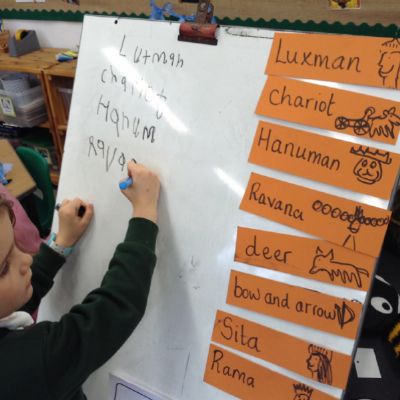 Luxman
chariot
Hanum
Rava
Luxman
Chariot
Hanuman
Ravana
deer
bow and arrow
Sita
Rama